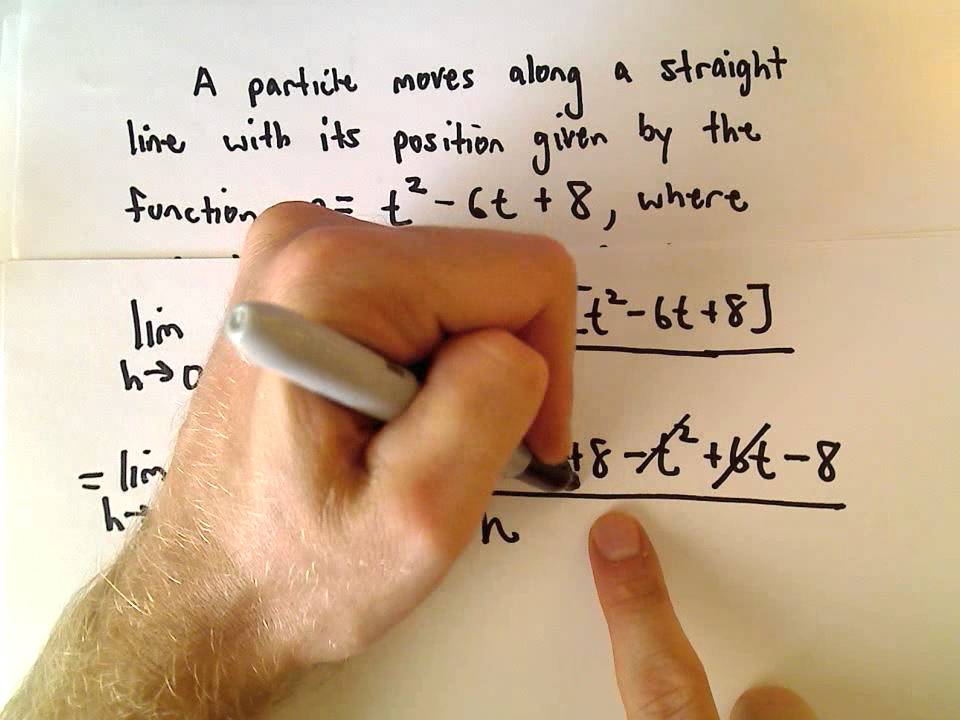 A particle moves along a straight
line with its position given by the
function = t² - 6t + 8, where
lim [t² - 6t + 8]
h→0
= lim +8 - t² + 6t - 8
h→ h